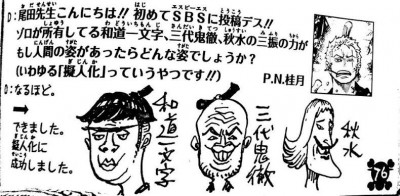 D:尾田先生こんにちは!!初めてSBSに投稿デス!!
ゾロが所有してる和道一文字、三代鬼徹、秋水の三振の力が
もし人間の姿があったらどんな姿でしょうか?
(いわゆる『擬人化』っていうやつです!!)
P.N.桂月
O:なるほど。
→
できました。
擬人化に
成功しました。
和道一文字
三代鬼徹
秋水
76